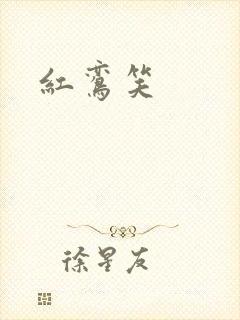 紅鸞笑
徐星友